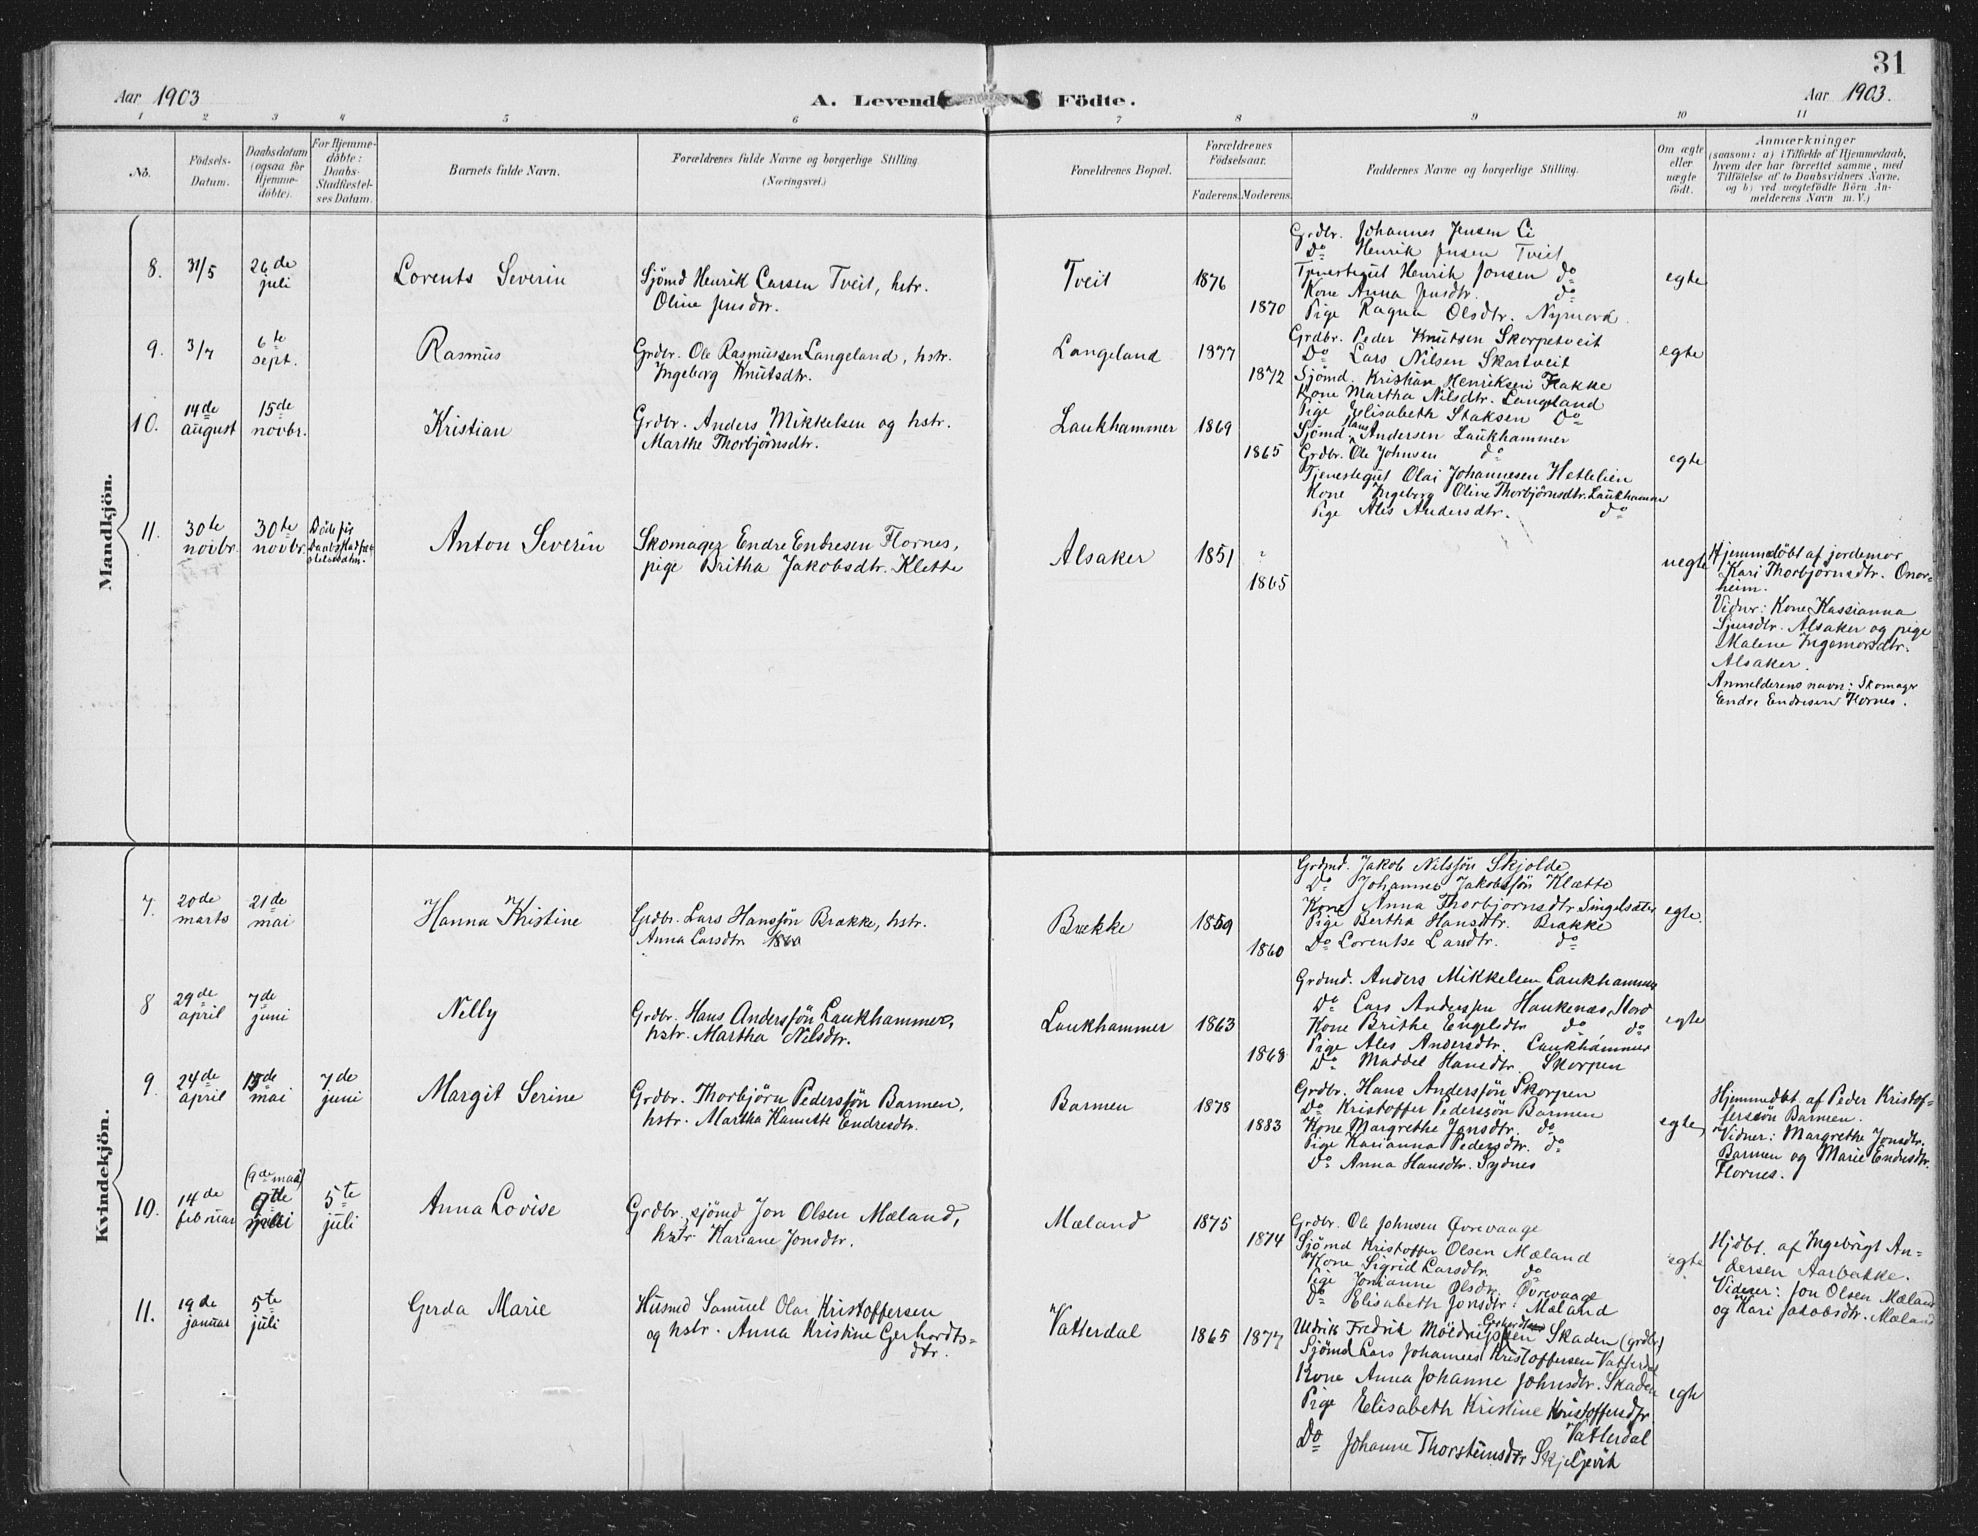 31
Aar 1903
A. Levend Födte.
Aar 1903.
1 2 3 4 5 6 7 8 9 10 11
No.
Födsels-
Datum.
Daabsdatum
(ogsaa for
Hjemme-
döbte).
For Hjemme-
döbte:
Daabs-
Stadfæstel-
ses Datum.
Barnets fulde Navn.
Forældrenes fulde Navne og borgerlige Stilling.
(Næringsvei.)
Forældrenes Bopæl.
Forældrenes
Födselsaar.
Faderens. Moderens.
Faddernes Navne og borgerlige Stilling.
Om ægte
eller
uægte
födt.
Anmærkninger
(saasom: a) i Tilfælde af Hjemmedaab,
hvem der har forrettet samme, med
Tilföielse af to Daabsvidners Navne,
og b) ved uægtefödte Börn An-
melderens Navn m. V.)
Mandkjön.
8. 31/5 26de
juli
Lorents Severin
Sjömd Henrik Larsen Tveit, hstr.
Oline Jensdtr.
Tveit
1876
1870
Grdbr. Johannes Jensen Li
Do Henrik Jensen Tveit
Tjenestegut Henrik Jonsen do
Kone Anna Jensdtr. do
Pige Ragna Olsdtr. Nymark
egte
9. 3/7 6te
sept.
Rasmus
Grdbr. Ole Rasmussen Langeland, hstr.
Ingeborg Knutsdtr.
Langeland
1877
1872
Grdbr. Peder Knutsen Skorpetveit
Do Lars Nilsen Skartveit
Sjömd. Kristian Henriksen Flakke
Kone Martha Nilsdtr. Langeland
Pige Elisabeth Isaksen Do
egte
10. 14de
august
15de
novbr.
Kristian
Grdbr. Anders Mikkelsen og hstr.
Marthe Thorbjörnsdtr.
Laukhammer
1869
1865
Sjömd Hans Andersen Laukhammer
Grdbr. Ole Johnsen do
Tjenestegut Olai Johannesen Hetlelien
Kone Ingeborg Oline Thorbjörnsdtr. Laukhammer
Pige Ales Andersdtr. do
egte
11. 30te
novbr.
30te
novbr.
Döde før
Daabsstadfæ-
stelsesdatm.
Anton Severin
Skomager Endre Endresen Flornes,
pige Britha Jakobsdtr. Klette
Alsaker
1851
1865
uegte
Hjemmedöbt af jordemor
Kari Thorbjörnsdtr. Onar-
heim.
Vidner: Kone Kassianna
Sjursdtr. Alsaker og pige
Malene Ingemorsdtr.
Alsaker.
Anmelderens navn: Skomager
Endre Endresen Flornes.
Kvindekjön.
7. 20de
marts
21de
mai
Hanna Kristine
Grdbr. Lars Hanssön Brække, hstr.
Anna Larsdtr 1860
Brække
1859
1860
Grdmd. Jakob Nilssön Skjolde
Do Johannes Jakobssön Klætte
Kone Anna Thorbjörnsdtr Singelsæter
Pige Bertha Hansdtr. Brække
Do Lorentse Larsdtr. do
egte.
8 29de
april
7de
juni
Nelly
Grdbr. Hans Anderssön Laukhammer,
hstr. Martha Nilsdtr.
Laukhammer
1863
1868
Grdmd. Anders Mikkelsen Laukhammer
Do Lars Anderssen Haukenæs, Nord
Kone Brithe Engelsdtr do do
Pige Ales Andersdtr. Laukhammer
Do Maddel Hansdtr. Skorpen
egte
9 24de
april
15de
mai
7de
juni
Margit Serine
Grdbr. Thorbjörn Pederssön Barmen,
hstr. Martha Kamette Endresdtr.
Barmen
1878
1883
Grdbr. Hans Anderssön Skorpen
Do Kristoffer Pederssön Barmen
Kone Margrethe Jonsdtr. do
Pige Karianna Pedersdtr. do
Do Anna Hansdtr. Sydnes
egte
Hjemmedbt af Peder Kristof-
ferssön Barmen.
Vidner: Margrethe Jonsdtr.
Barmen og Marie Endresdtr.
Flornes.
10. 14de
februar
(9de mai)
5te
juli
Anna Lovise
Grdbr. sjömd Jon Olsen Mæland,
hstr Kariane Jonsdtr.
Mæland
1875
1874
Grdbr. Ole Johnsen Övrevaage
Sjömd Kristoffer Olsen Mæland
Kone Sigrid Larsdtr. do
Pige Jonianne Olsdtr. Övrevaage
Do Elisabeth Jonsdtr. Mæland
egte
Hjdbt. af Ingebrigt An-
dersen Aarbakke.
Vidner: Jon Olsen Mæland
og Kari Jakobsdtr. Mæland
11. 19de
januar
5te
juli
Gerda Marie
Husmd Samuel Olai Kristoffersen
og hstr. Anna Kristine Gerhardts-
dtr.
Vatterdal
1865 1877
Uldrik Fredrik Skaden (grdbr)
Sjömd Lars Johannes Kristoffersen Vatterdal
Kone Anna Johanne Johnsdtr. Skaden
Pige Elisabeth Kristine Kristoffersdtr.
Vatterdal
Do Johanne Thorsteinsdtr Skjeljevik
egte